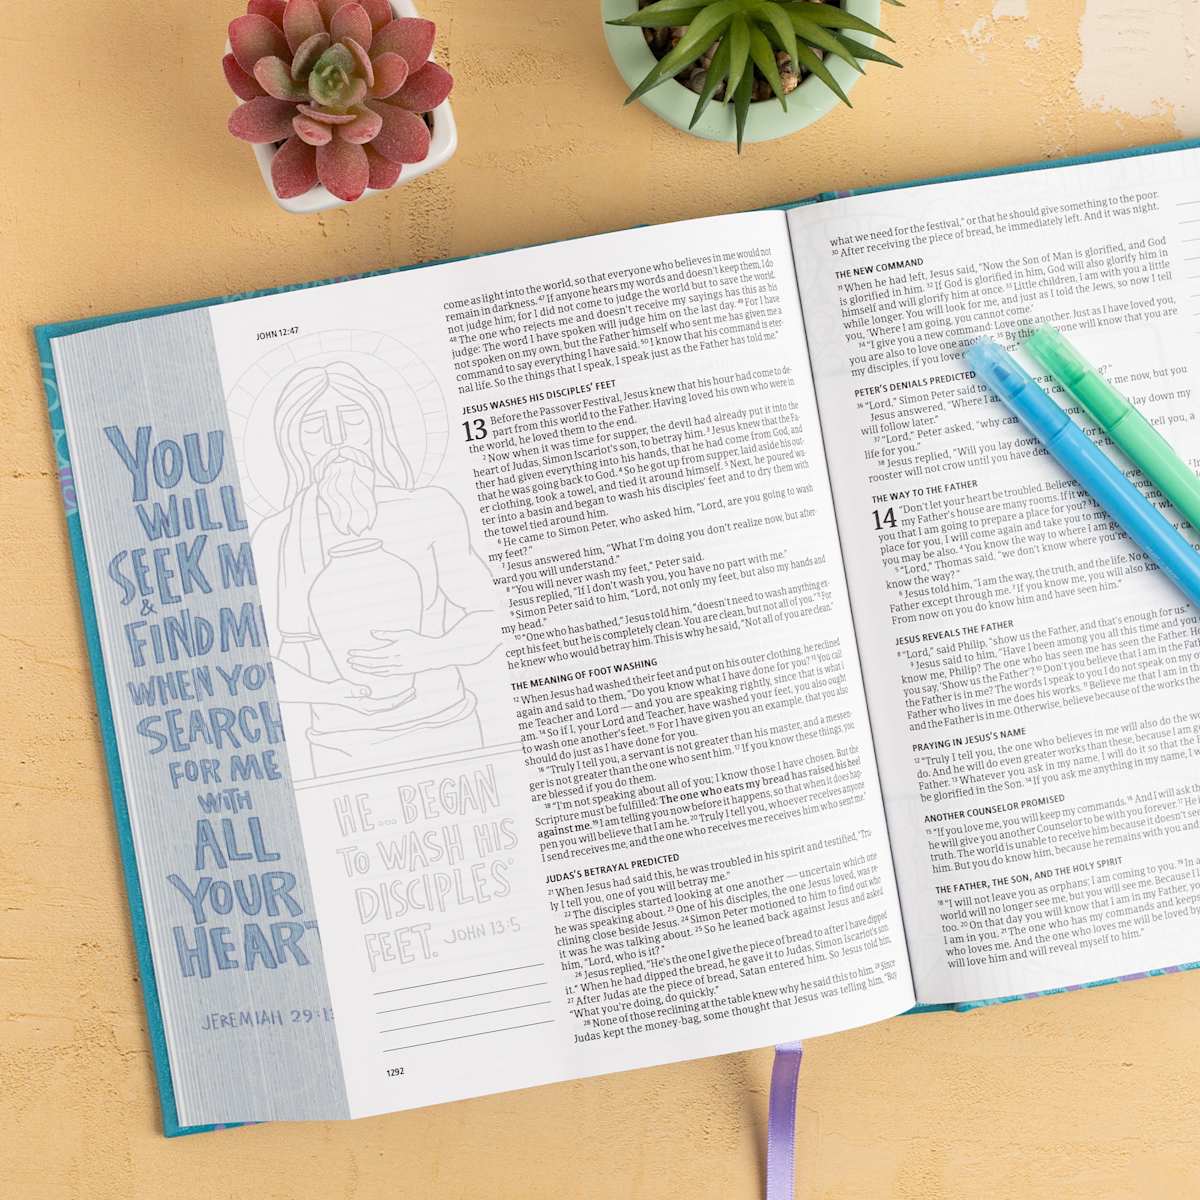 YOU
WILL
SEEK M
&
FIND M
WHEN YO
SEARCH
FOR ME
WITH
ALL
YOUR
HEART
JEREMIAH 29:13
JOHN 12:47
HE... BEGAN
TO WASH HIS
DISCIPLES'
FEET. JOHN 13:5
1292
come as light into the world, so that everyone who believes in me would not
remain in darkness. 47 If anyone hears my words and doesn't keep them, I do
not judge him; for I did not come to judge the world but to save the world.
48 The one who rejects me and doesn't receive my sayings has this as his
judge: The word I have spoken will judge him on the last day. 49 For I have
not spoken on my own, but the Father himself who sent me has given me a
command to say everything I have said. 50 I know that his command is eter-
nal life. So the things that I speak, I speak just as the Father has told me."
JESUS WASHES HIS DISCIPLES' FEET
13 Before the Passover Festival, Jesus knew that his hour had come to de-
part from this world to the Father. Having loved his own who were in
the world, he loved them to the end.
2 Now when it was time for supper, the devil had already put it into the
heart of Judas, Simon Iscariot's son, to betray him. 3 Jesus knew that the Fa-
ther had given everything into his hands, that he had come from God, and
that he was going back to God. 4 So he got up from supper, laid aside his out-
er clothing, took a towel, and tied it around himself. 5 Next, he poured wa-
ter into a basin and began to wash his disciples' feet and to dry them with
the towel tied around him.
6 He came to Simon Peter, who asked him, "Lord, are you going to wash
my feet?"
7 Jesus answered him, "What I'm doing you don't realize now, but after-
ward you will understand."
8 "You will never wash my feet," Peter said.
Jesus replied, "If I don't wash you, you have no part with me."
9 Simon Peter said to him, "Lord, not only my feet, but also my hands and
my head."
10 "One who has bathed," Jesus told him, "doesn't need to wash anything ex-
cept his feet, but he is completely clean. You are clean, but not all of you." 11 For
he knew who would betray him. This is why he said, "Not all of you are clean."
THE MEANING OF FOOT WASHING
12 When Jesus had washed their feet and put on his outer clothing, he reclined
again and said to them, "Do you know what I have done for you? 13 You call
me Teacher and Lord — and you are speaking rightly, since that is what I
am. 14 So if I, your Lord and Teacher, have washed your feet, you also ought
to wash one another's feet. 15 For I have given you an example, that you also
should do just as I have done for you.
16 "Truly I tell you, a servant is not greater than his master, and a messen-
ger is not greater than the one who sent him. 17 If you know these things, you
are blessed if you do them.
18 "I'm not speaking about all of you; I know those I have chosen. But the
Scripture must be fulfilled: The one who eats my bread has raised his heel
against me. 19 I am telling you now before it happens, so that when it does hap-
pen you will believe that I am he. 20 Truly I tell you, whoever receives anyone
I send receives me, and the one who receives me receives him who sent me."
JUDAS'S BETRAYAL PREDICTED
21 When Jesus had said this, he was troubled in his spirit and testified, "Tru-
ly I tell you, one of you will betray me."
22 The disciples started looking at one another — uncertain which one
he was speaking about. 23 One of his disciples, the one Jesus loved, was re-
clining close beside Jesus. 24 Simon Peter motioned to him to find out who
it was he was talking about. 25 So he leaned back against Jesus and asked
him, "Lord, who is it?"
26 Jesus replied, "He's the one I give the piece of bread to after I have dipped
it." When he had dipped the bread, he gave it to Judas, Simon Iscariot's son.
27 After Judas ate the piece of bread, Satan entered him. So Jesus told him,
"What you're doing, do quickly."
28 None of those reclining at the table knew why he said this to him. 29 Since
Judas kept the money-bag, some thought that Jesus was telling him, "Buy
what we need for the festival," or that he should give something to the poor.
30 After receiving the piece of bread, he immediately left. And it was night.
THE NEW COMMAND
31 When he had left, Jesus said, "Now the Son of Man is glorified, and God
is glorified in him. 32 If God is glorified in him, God will also glorify him in
himself and will glorify him at once. 33 Little children, I am with you a little
while longer. You will look for me, and just as I told the Jews, so now I tell
you, 'Where I am going, you cannot come.'
34 "I give you a new command: Love one another. Just as I have loved you,
you are also to love one another. 35 By this everyone will know that you are
my disciples, if you love
PETER'S DENIALS PREDICTED
36 "Lord," Simon Peter said to
Jesus answered, "Where I am me now, but you
will follow later."
37 "Lord," Peter asked, "why can't lay down my
life for you."
38 Jesus replied, "Will you lay down tell you, a
rooster will not crow until you have
THE WAY TO THE FATHER
14 "Don't let your heart be troubled. Believe
my Father's house are many rooms. If it
you that I am going to prepare a place for you?
place for you, I will come again and take you to
you may be also. 4 You know the way to where I am
5 "Lord," Thomas said, "we don't know where you're
know the way?"
6 Jesus told him, "I am the way, the truth, and the life. No
Father except through me. 7 If you know me, you will also
From now on you do know him and have seen him."
JESUS REVEALS THE FATHER
8 "Lord," said Philip, "show us the Father, and that's enough for us."
9 Jesus said to him, "Have I been among you all this time and you
know me, Philip? The one who has seen me has seen the Father.
you say, 'Show us the Father'? 10 Don't you believe that I am in the
the Father is in me? The words I speak to you I do not speak on my
Father who lives in me does his works. 11 Believe me that I am in the
and the Father is in me. Otherwise, believe because of the works
PRAYING IN JESUS'S NAME
12 "Truly I tell you, the one who believes in me will also do the
do. And he will do even greater works than these, because I am
Father. 13 Whatever you ask in my name, I will do it so that the
be glorified in the Son. 14 If you ask me anything in my name, I
ANOTHER COUNSELOR PROMISED
15 "If you love me, you will keep my commands. 16 And I will ask the
he will give you another Counselor to be with you forever. 17 He
truth. The world is unable to receive him because it doesn't
him. But you do know him, because he remains with you and
THE FATHER, THE SON, AND THE HOLY SPIRIT
18 "I will not leave you as orphans; I am coming to you. 19 In
world will no longer see me, but you will see me. Because I
too. 20 On that day you will know that I am in my Father,
I am in you. 21 The one who has my commands and keeps
who loves me. And the one who loves me will be loved by
will love him and will reveal myself to him."